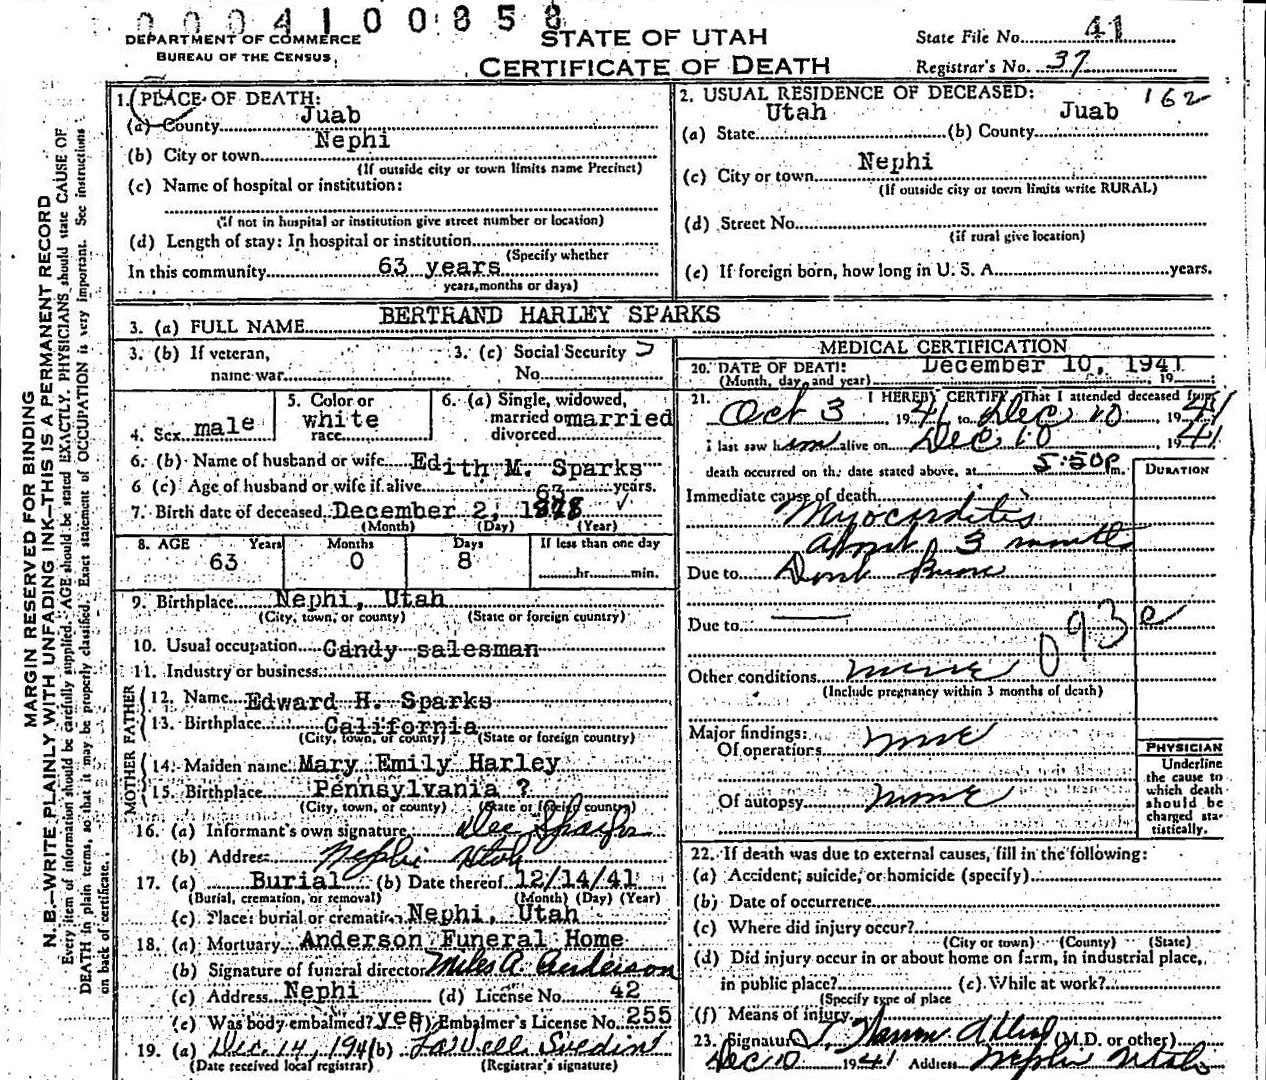 0004100858
DEPARTMENT OF COMMERCE
BUREAU OF THE CENSUS
STATE OF UTAH
CERTIFICATE OF DEATH
State File No. 41
Registrar's No. 37
MARGIN RESERVED FOR BINDING
N.B.—WRITE PLAINLY WITH UNFADING INK—THIS IS A PERMANENT RECORD
Every item of information should be carefully supplied. AGE should be stated EXACTLY. PHYSICIANS should state CAUSE OF
DEATH in plain terms, so that it may be properly classified. Exact statement of OCCUPATION is very important. See instructions
on back of certificate.
1. PLACE OF DEATH:
(a) County Juab
(b) City or town Nephi
(If outside city or town limits name Precinct)
(c) Name of hospital or institution:
(if not in hospital or institution give street number or location)
(d) Length of stay: In hospital or institution
(Specify whether
In this community 63 years
years, months or days)
2. USUAL RESIDENCE OF DECEASED: 162
(a) State Utah (b) County Juab
(c) City or town Nephi
(If outside city or town limits write RURAL)
(d) Street No.
(if rural give location)
(e) If foreign born, how long in U. S. A. years.
3. (a) FULL NAME BERTRAND HARLEY SPARKS
3. (b) If veteran,
name war
3. (c) Social Security
No.
4. Sex male
5. Color or
race white
6. (a) Single, widowed,
married or married
divorced
6. (b) Name of husband or wife Edith M. Sparks
6 (c) Age of husband or wife if alive 63 years.
7. Birth date of deceased December 2, 1878
(Month) (Day) (Year)
8. AGE Years Months Days If less than one day
63 0 8 hr. min.
9. Birthplace Nephi, Utah
(City, town, or county) (State or foreign country)
10. Usual occupation Candy salesman
11. Industry or business
FATHER
12. Name Edward H. Sparks
13. Birthplace California
(City, town, or county) (State or foreign country)
MOTHER
14. Maiden name Mary Emily Harley
15. Birthplace Pennsylvania ?
(City, town, or county) (State or foreign country)
16. (a) Informant's own signature Dee Sparks
(b) Address Nephi Utah
17. (a) Burial (b) Date thereof 12/14/41
(Burial, cremation, or removal) (Month) (Day) (Year)
(c) Place: burial or cremation Nephi, Utah
18. (a) Mortuary Anderson Funeral Home
(b) Signature of funeral director Miles A. Anderson
(c) Address Nephi (d) License No. 42
(e) Was body embalmed? yes (f) Embalmer's License No. 255
19. (a) Dec. 14, 1941 (b) LaVell Svedin
(Date received local registrar) (Registrar's signature)
MEDICAL CERTIFICATION
20. DATE OF DEATH: December 10, 1941
(Month, day, and year) 19
21. I HEREBY CERTIFY, That I attended deceased from
Oct 3, 1941 to Dec 10, 1941
I last saw him alive on Dec 10, 1941
death occurred on the date stated above, at 5:50P m.
DURATION
Immediate cause of death
Myocarditis
about 3 month
Due to Dont know
Due to
093e
Other conditions none
(Include pregnancy within 3 months of death)
Major findings:
Of operations none
Of autopsy none
PHYSICIAN
Underline
the cause to
which death
should be
charged sta-
tistically.
22. If death was due to external causes, fill in the following:
(a) Accident, suicide, or homicide (specify)
(b) Date of occurrence
(c) Where did injury occur?
(City or town) (County) (State)
(d) Did injury occur in or about home on farm, in industrial place,
in public place? (e) While at work?
(Specify type of place
(f) Means of injury
23. Signature (M.D. or other)
Dec 10 1941 Address Nephi Utah